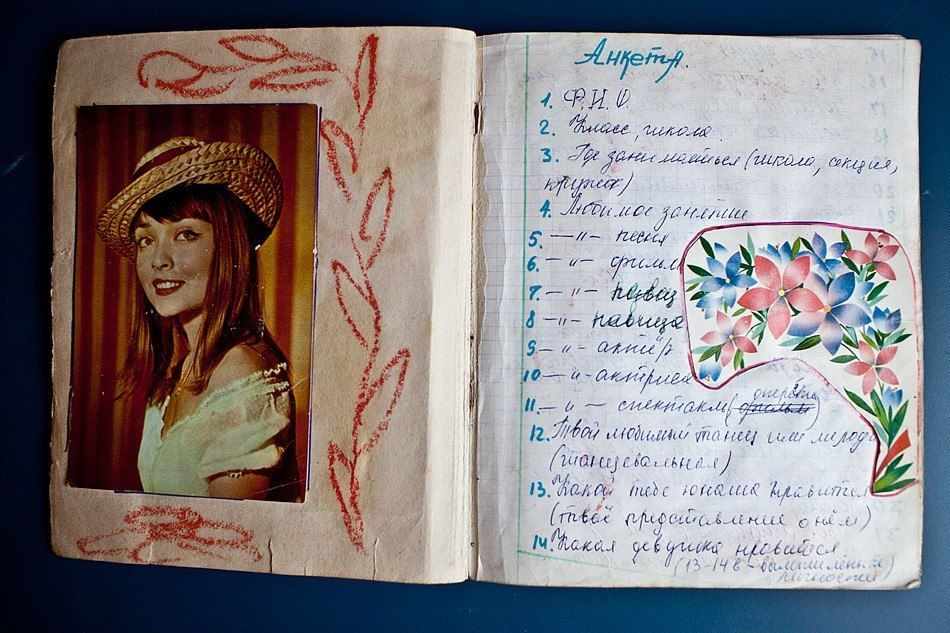 Анкета.
1. Ф.И.О.
2. Класс, школа
3. Где занимаешься (школа, секция,
кружок)
4. Любимое занятие
5. — " — песня
6. — " — фильм
7. — " — певец
8 — " — певица
9. — " — актёр
10 — " — актриса
оперетта
11. — " — спектакль (фильм)
12. Твой любимый танец или мелодия
(танцевальная)
13. Какой тебе юноша нравится
(твоё представление о нём)
14. Какая девушка нравится
(13-14 в - вымышленные
личности)